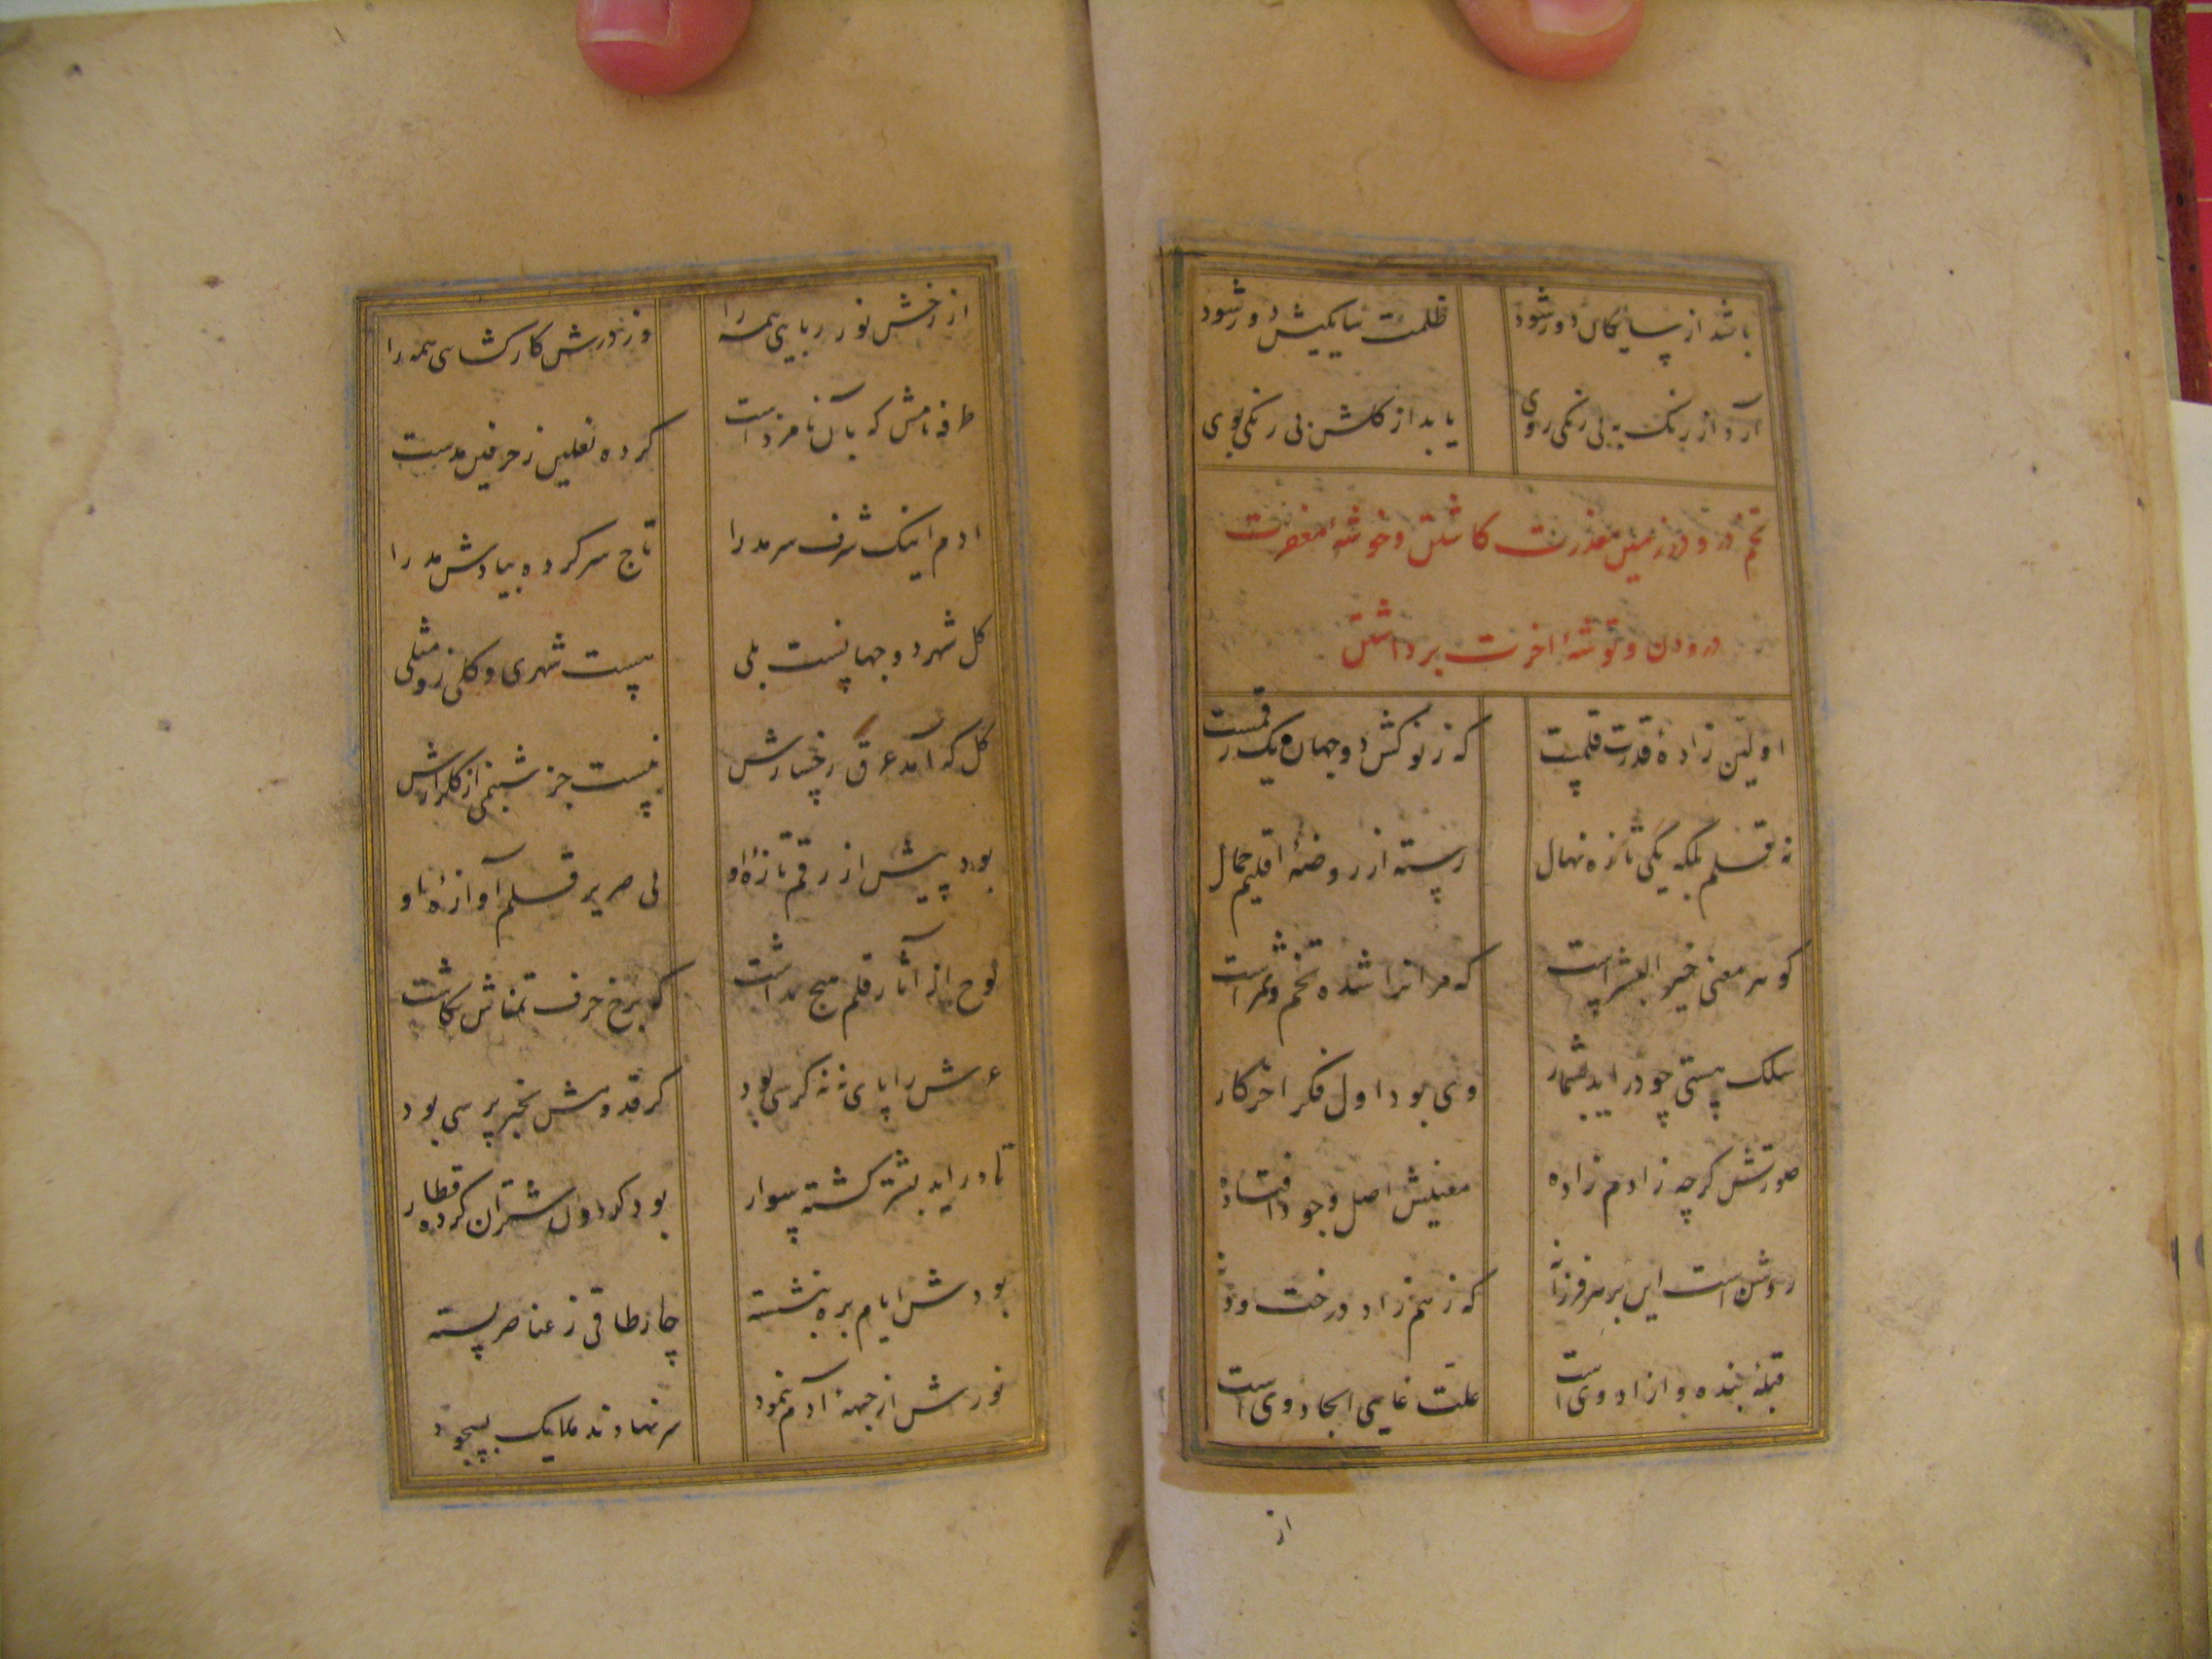 باشد از سایکان دور شود ظلمت سایکیش دور شود
آرد از رنک به بی رنکی روی یابد از کلشن بی رنکی بوی
تخم درود در زمین معذرت کاشتن و خوشهٔ مغفرت
درودن و توشهٔ اخرت برداشتن
اولین زادهٔ قدرت قلمست که ز نوکش دو جهان یک رقمست
نه قلم بلکه یکی تازه نهال رسته از روضهٔ اقلیم جمال
کوهر معنی خیر البشر است که مر انرا شده تخم و ثمر است
سلک هستی چو در اید بشمار وی بود اول فکر اخر کار
صورتش کرچه ز ادم زاده معنیش اصل وجود افتاده
روشن است این بر هر فرزانه که ز تخم زاد درخت و دانه
قبلهٔ بنده و ازاد وی است علت غایی ایجاد وی است
از
از رخش نور ربایی همه را وز درش کار کشایی همه را
طرفه نامش که بآن نامزد است کرده نعلین ز حرفین مدست
ادم اینک شرف سرمد را تاج سر کرده بیادش مد را
کل شهر دو جهانست بلی نیست شهری و کلی زو مثلی
کل که آمد عرق رخسارش نیست جز شبنمی از کلزارش
بود پیش از رقم تازهٔ او بی صریر قلم آوازهٔ او
لوح از آثار قلم هیچ نداشت کو برخ حرف تمناش نکاشت
عرش را پای نه نه کرسی بود کز قدومش بخبر پرسی بود
تا در اید بشتر کشته سوار بود کردون شتران کرده قطار
بودش ایام بره بنشسته چار طاقی ز عناصر بسته
نورش از جبههٔ آدم بنمود سر نهادند ملایک بسجود